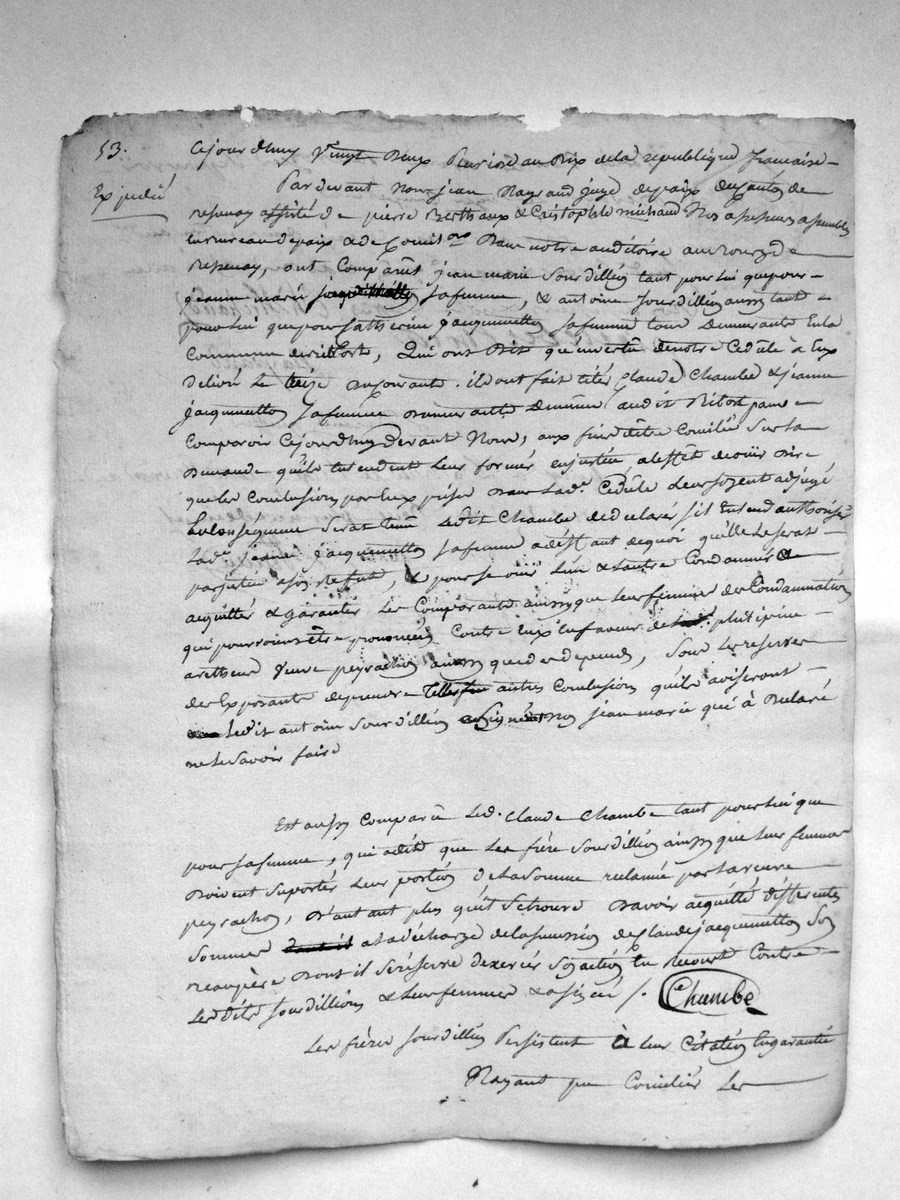 53.
Cejourdhuy vingt Deux Pluviose an Dix de la republique francaise
Expedié
Par devant Nous jean Nayraud juge de paix du Canton de
assisté de pierre Berthaux & Cristophle michaud Nos assesseurs assemblés
en bureau de paix & de Concil.on Dans notre auditoire au bourg de
ont Comparut jean marie Sourdillion tant pour lui que pour
jeanne marie sa femme, & antoine Sourdillion aussy tant
pour lui que pour Catherine jacquemetton sa femme tous Demeurants En la
Commune de villborts, Qui ont Dit qu'en vertu de notre Cedule a Eux
Delivré Le treize du Courant. ils ont fait citer Claude Chambe & jeanne
jacquemetton sa femme Demeurants Demême audit pour
Comparoir Cejourdhuy devant Nous, aux fins d'être Conciliés Sur la
Demande qu'ils entendent Leur former en justice a l'effet de ouir Dire
que les Conclusions par Eux prises Dans lad.e Cedule Leur soyent adjugé
En Conséquence Serat tenu Ledit Chambe de declarer s'il Entend authoriser
lad.e jeanne jacquemetton sa femme a deffaut de quoi qu'elle Le serat
par justice a son refut, & pour se ouir L'un & L'autre Condamner a
acquitter & garantir Les Comparants ainsy que leurs femmes des Condamnations
qui pourroint être prononcées Contre Eux En faveur de
veuve peyrachon ainsy que des depends, Sous Les reserves
des Exposants de prendre telles fin autres Conclusions qu'ils aviseront
Ledit antoine Sourdillion a Signé & Non jean marie qui a Declaré
ne Le savoir faire
Est aussy Comparu Led. Claude Chambe tant pour lui que
pour sa femme, qui a dit que Les frère Sourdillion ainsy que leur femmes
Doivent suporter Leur portion de La Somme reclamée par la veuve
peyrachon, D'autant plus qu'il se trouve Davoir acquitté differentes
sommes a la décharge de la succession de Claude jacquemetton Son
beaupère Dont il se réserve d'exercer Son action En recourt Contre
Lesdits Sourdillions & leur femmes & a signé /. Chambe
Les frères Sourdillion Persistent à Leur Citation En garantie
N'ayant pu Concilier Les